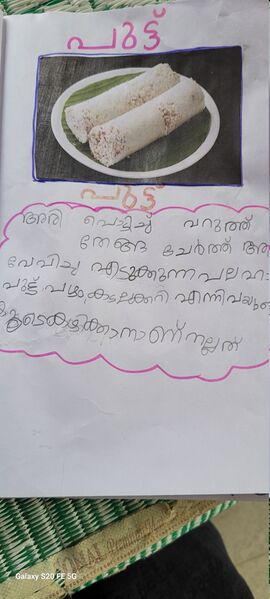 പുട്ട്
പുട്ട്
അരി പൊടിച്ച് വറുത്ത്
തേങ്ങ ചേർത്ത്
വേവിച്ചു എടുക്കുന്ന പലഹാ
പുട്ട് പഴം, കടലക്കറി എന്നിവയു
കൂടെ കഴിക്കാനാണ് നല്ലത്
Galaxy S20 FE 5G